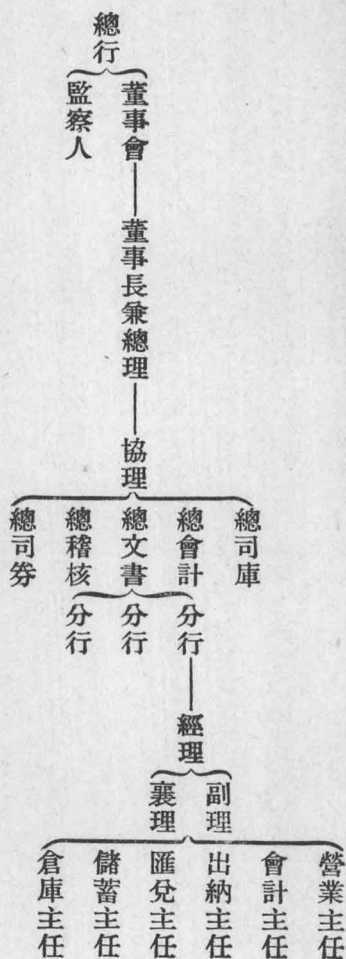 總行
董事會
監察人
董事長兼總理
協理
總司庫
總會計
總文書
總稽核
總司券
分行
分行
分行
經理
副理
襄理
營業主任
會計主任
出納主任
匯兌主任
儲蓄主任
倉庫主任